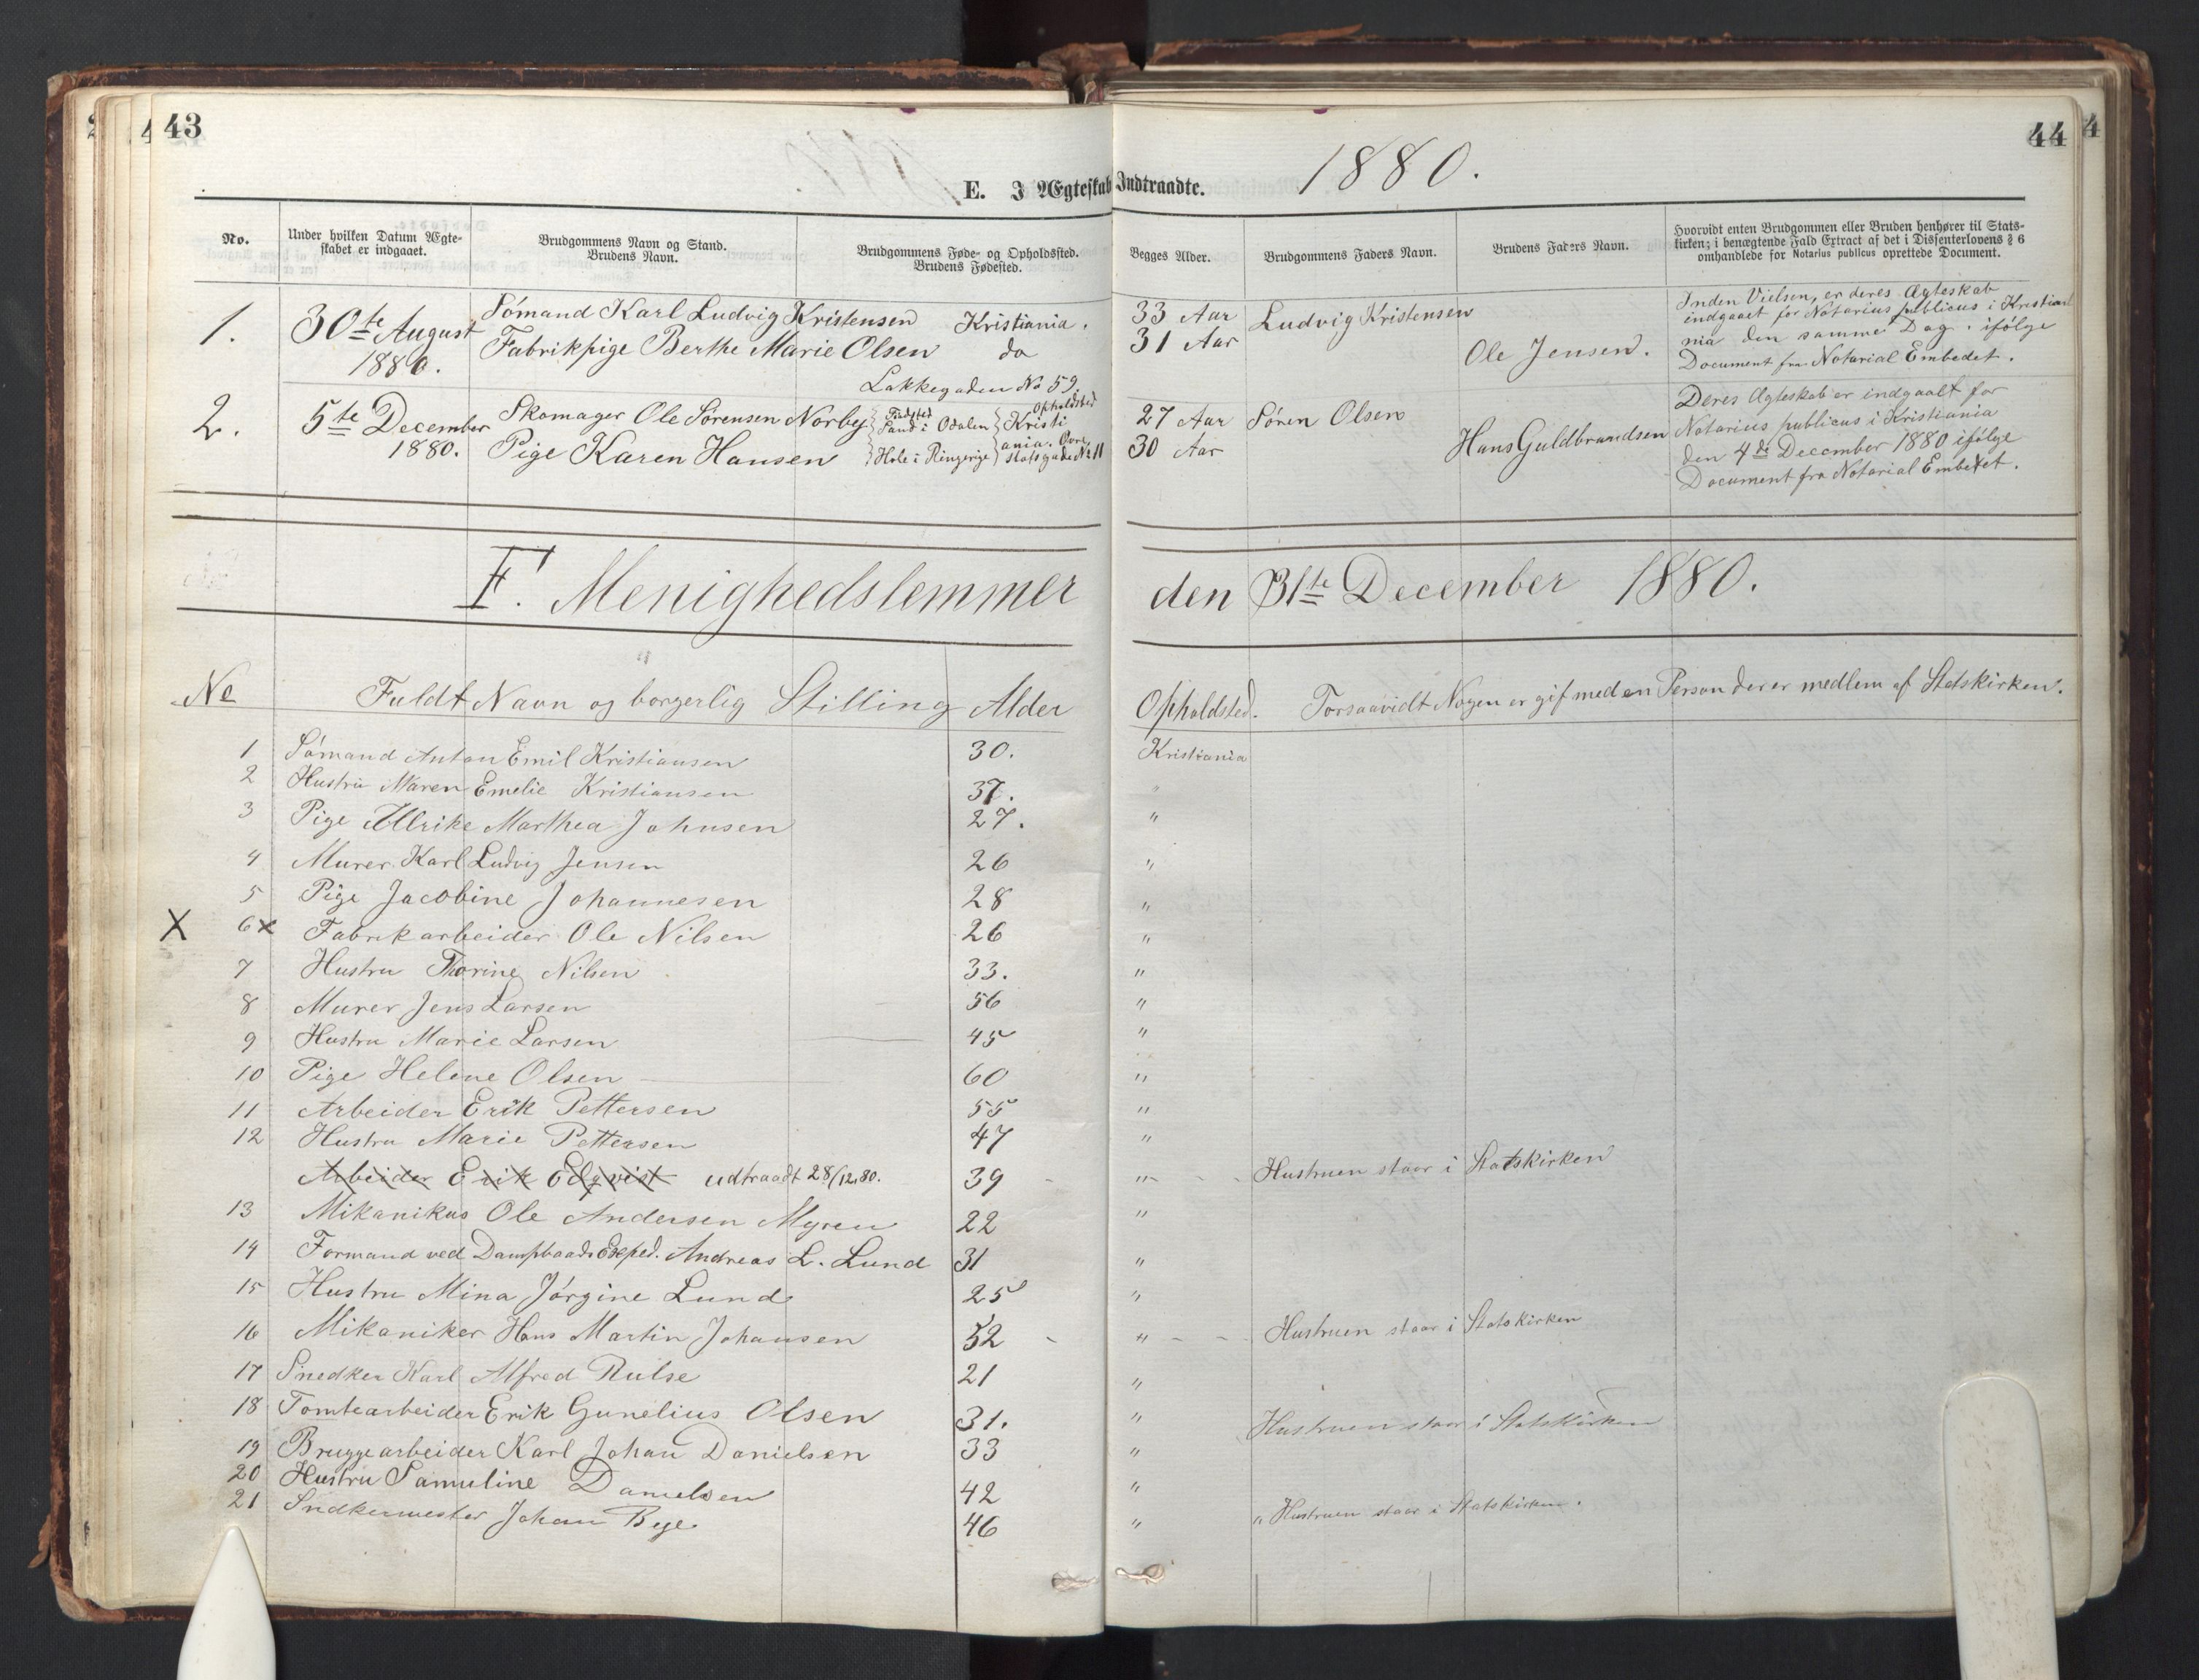 43
44
1880.
E. I Ægteskab Indtraadte.
No.
Under hvilken Datum Ægte-
skabet er indgaaet.
Brudgommens Navn og Stand.
Brudens Navn.
Brudgommens Føde- og Opholdssted.
Brudens Fødested.
Begges Alder.
Brudgommens Faders Navn.
Brudens Faders Navn.
Hvorvidt enten Brudgommen eller Bruden henhører til Stats-
kirken; i benægtende Fald Extract af det i Dissenterlovens § 6
omhandlede for Notarius publicus oprettede Document.
1.
30te August
1880.
Sömand Karl Ludvig Kristensen Kristiania.
Fabrikpige Berthe Marie Olsen do
33 Aar
31 Aar
Ludvig Kristensen
Ole Jensen.
Inden Vielsen, er deres Ægteskab
indgaaet for Notarius publicus i Kristia
nia den samme Dag. ifölge
Document fra Notarial Embedet.
2.
5te December
1880.
Lakkegaden No 59
Skomager Ole Sörensen Norbye
Pige Karen Hansen
Fødsted
Sand i Odalen
Hole i Ringerige
Opholdsted
Kristi
ania. Övre
slotsgade No 11
27 Aar
30 Aar
Sören Olsen
Hans Guldbrandsen
Deres Ægteskab er indgaalt for
Notarius publicus i Kristiania
den 4de December 1880 ifölge
Document fra Notarial Embetet.
F. Menighedslemmer den 31te December 1880.
No Fuldt Navn og borgerlig Stilling Alder Opholdsted. Forsaavidt Nogen er gif med en Person der er medlem af Statskirken.
1 Sömand Anton Emil Kristiansen 30. Kristiania
2 Hustru Maren Emelie Kristiansen 37. "
3 Pige Ulrike Marthea Johnsen 27. "
4 Murer Karl Ludvig Jensen 26 "
5 Pige Jacobine Johannesen 28 "
X 6x Fabrikarbeider Ole Nilsen 26 "
7 Hustru Thorine Nilsen 33. "
8 Murer Jens Larsen 56 "
9 Hustru Marie Larsen 45 "
10 Pige Helene Olsen 60 "
11 Arbeider Erik Pettersen 55 "
12 Hustru Marie Pettersen 47 "
Arbeider Erik Edqvist udtraadt 28/12.80. 39 - " - - Hustruen staar i Statskirken
13 Mikanikus Ole Andersen Myren 22 "
14 Formand ved Dampbaads Exped. Andreas L. Lund 31 "
15 Hustru Mina Jörgine Lund 25 "
16 Mikaniker Hans Martin Johansen 52 - " - - Hustruen staar i Statskirken
17 Snedker Karl Alfred Rulse 21 "
18 Tomtearbeider Erik Gunelius Olsen 31. " Hustruen staar i Statskirken
19 Bryggearbeider Karl Johan Danielsen 33 "
20 Hustru Samuline Danielsen 42 "
21 Sndkermester Johan Bye 46 " " Hustruen staar i Statskirken.